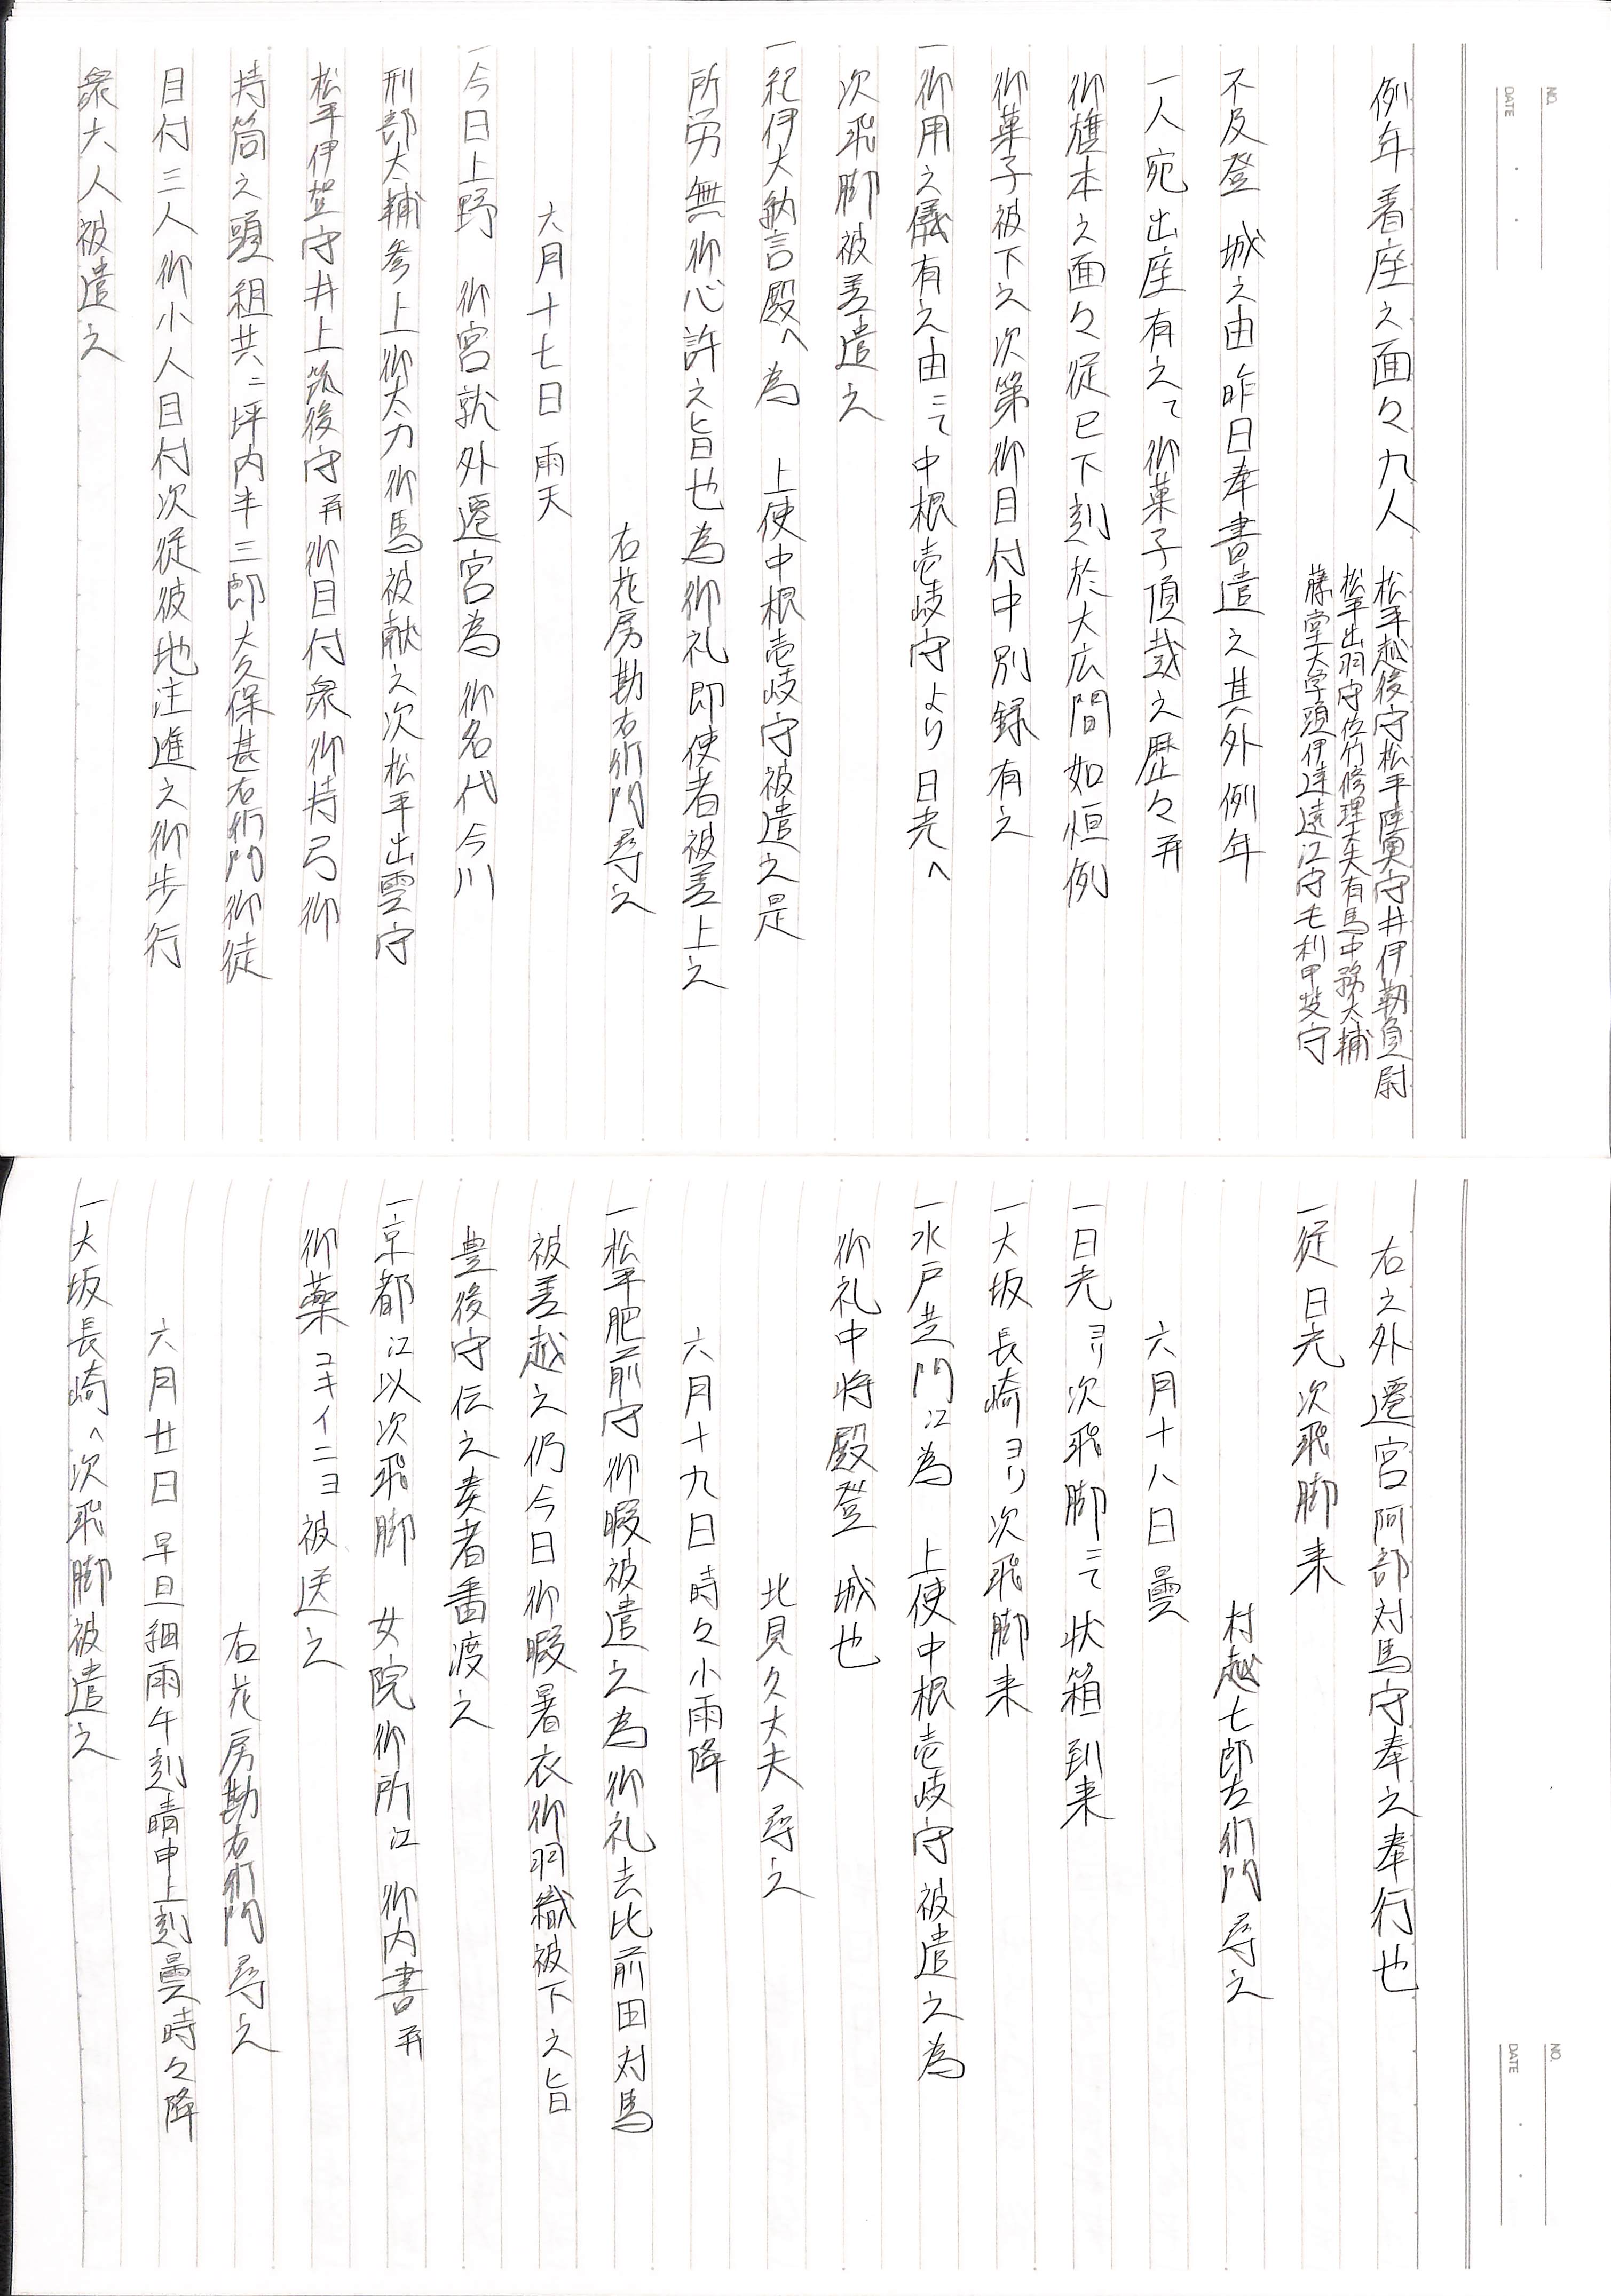 NO.
DATE
例年着座之面々九人
松平越後守松平陸奥守井伊靱負尉
松平出羽守佐竹修理大夫有馬中務太輔
藤堂大学頭伊達遠江守毛利甲斐守
不及登　城之由昨日奉書遣之其外例年
一人宛出座有之て御菓子頂戴之歴々并
御旗本之面々従巳下刻於大広間如恒例
御菓子被下之次第御目付中別録有之
一御用之儀有之由ニて中根壱岐守より日光へ
次飛脚被差遣之
一紀伊大納言殿へ為　上使中根壱岐守被遣之是
所労無御心許之旨也為御礼即使者被差上之
右花房勘右衛門尋之
六月十七日　雨天
一今日上野　御宮就外遷宮為御名代今川
刑部太輔参上御太刀御馬被献之次松平出雲守
松平伊賀守井上筑後守并御目付衆御持弓御
持筒之頭組共ニ坪内半三郎大久保甚右衛門御徒
目付三人御小人目付次従彼地注進之御歩行
衆六人被遣之
NO.
DATE
右之外遷宮阿部対馬守奉之奉行也
一従日光次飛脚来
村越七郎左衛門尋之
六月十八日　曇
一日光ヨリ次飛脚ニて状箱到来
一大坂長崎ヨリ次飛脚来
一水戸黄門江為　上使中根壱岐守被遣之為
御礼中将殿登　城也
北見久太夫尋之
六月十九日　時々小雨降
一松平肥前守御暇被遣之為御礼去比前田対馬
被差越之仍今日御暇暑衣御羽織被下之旨
豊後守伝之奏者番渡之
一京都江以次飛脚　女院御所江　御内書并
御薬コキイニヨ被送之
右花房勘右衛門尋之
六月廿日　早旦細雨午刻晴申上刻曇時々降
一大坂長崎へ次飛脚被遣之